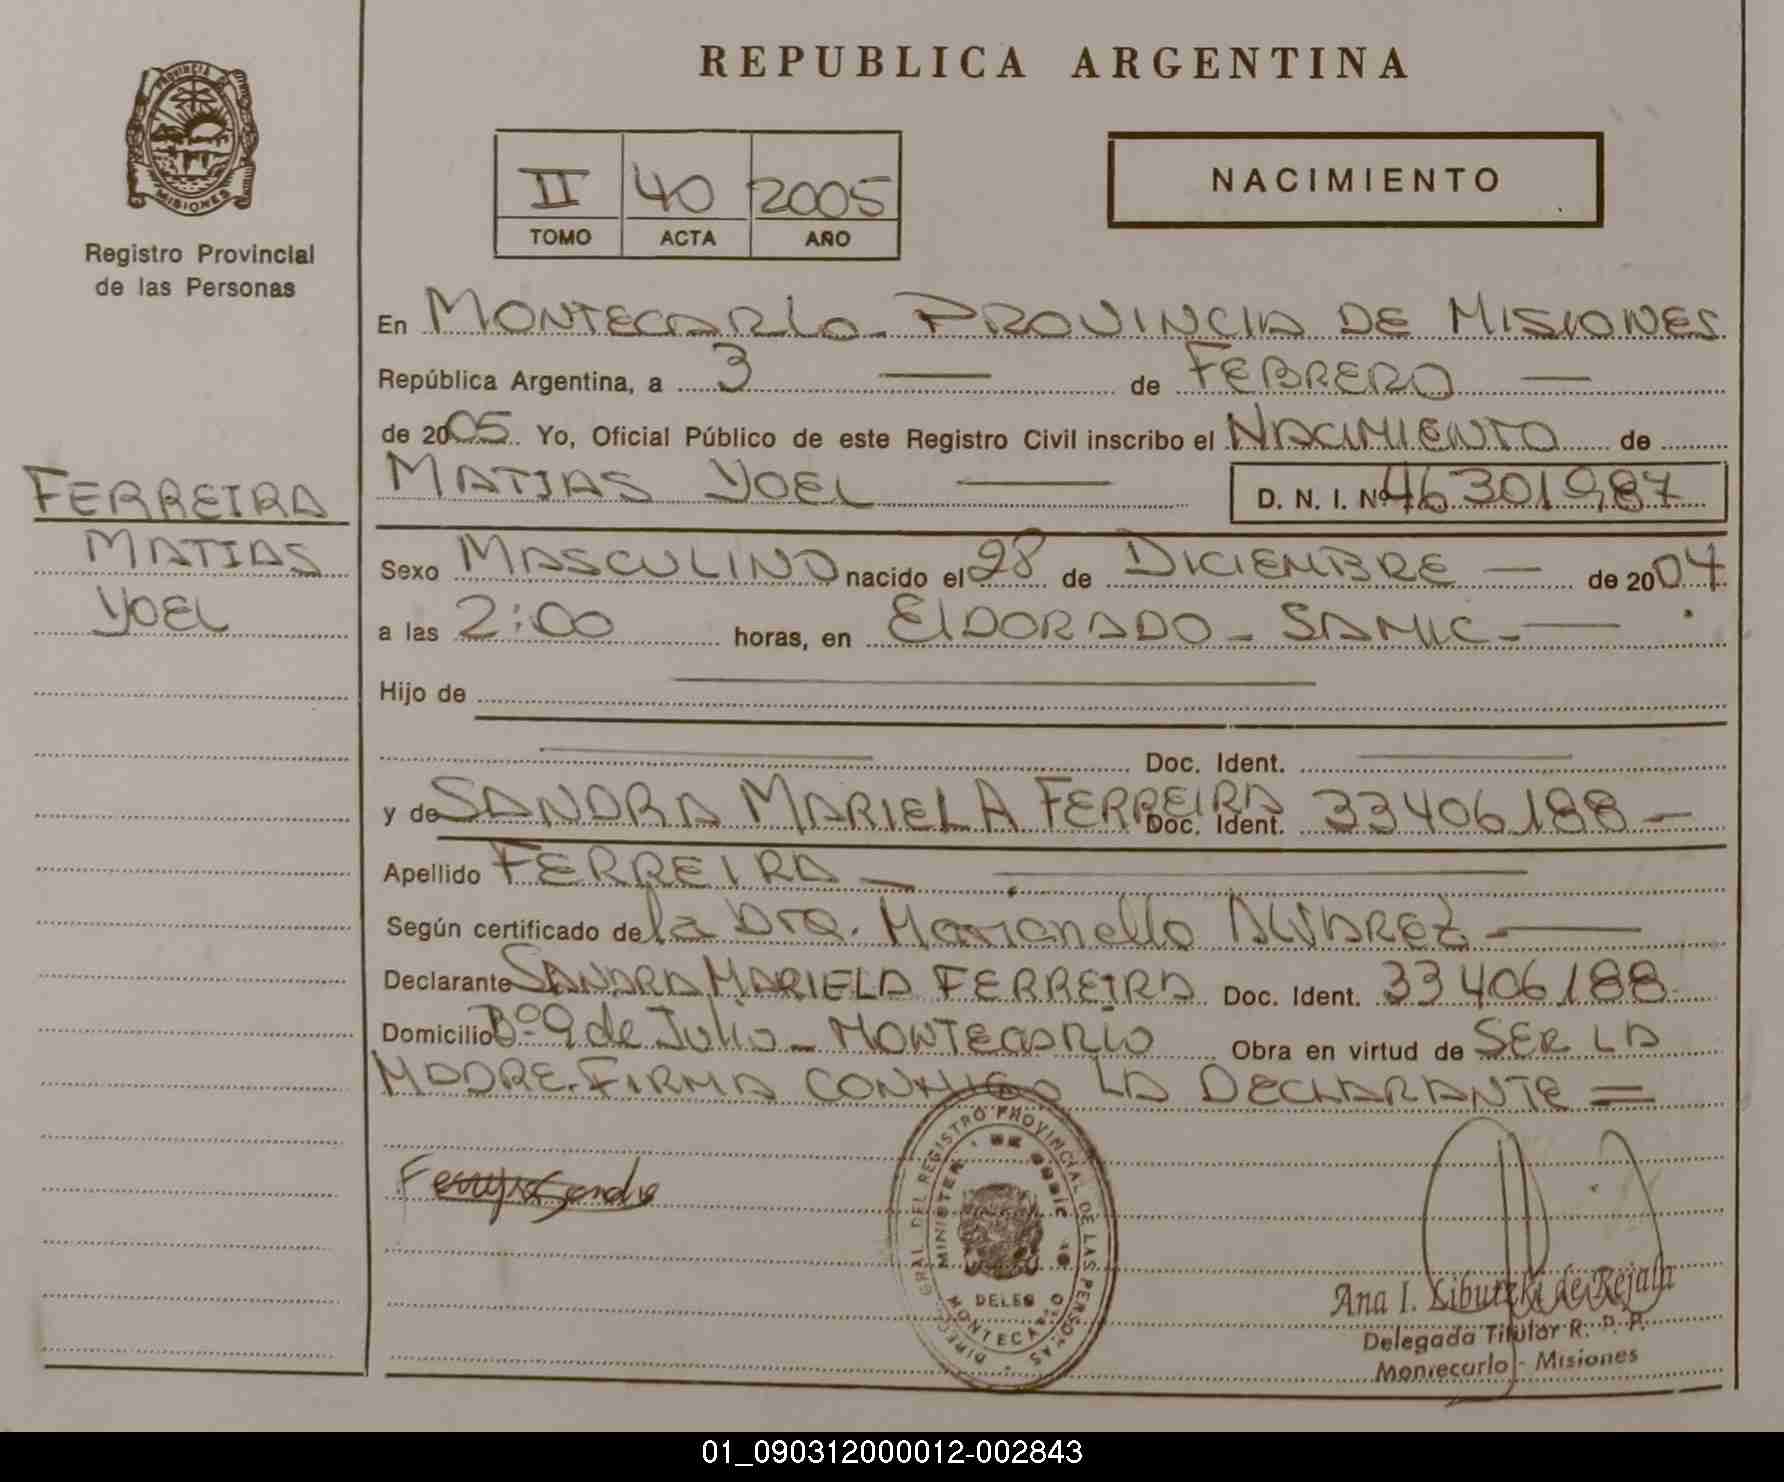 REPUBLICA ARGENTINA
PROVINCIA DE
MISIONES
Registro Provincial
de las Personas
II 40 2005
TOMO ACTA AÑO
NACIMIENTO
En MONTECARLO - PROVINCIA DE MISIONES
República Argentina, a 3 — de FEBRERO —
de 2005. Yo, Oficial Público de este Registro Civil inscribo el NACIMIENTO de
MATIAS YOEL — D. N. I. Nº 46301987
FERREIRA
MATIAS
YOEL
Sexo MASCULINO nacido el 28 de DICIEMBRE — de 2004
a las 2:00 horas, en ElDORADO - SAMIC - —
Hijo de —
— Doc. Ident. —
y de SANDRA MARIELA FERREIRA Doc. Ident. 33406188 —
Apellido FERREIRA — —
Según certificado de la Dra. Marianella ALVAREZ —
Declarante SANDRA MARIELA FERREIRA Doc. Ident. 33406188
Domicilio Bº 9 de Julio - MONTECARLO Obra en virtud de SER LA
MADRE. FIRMA CONMIGO LA DECLARANTE =
DIREC. GRAL. DEL REGISTRO PROVINCIAL DE LAS PERSONAS
DELEG
MONTECARLO
Ana I. Libutzki de Rejala
Delegada Titular R. P. P.
Montecarlo - Misiones
01_090312000012-002843